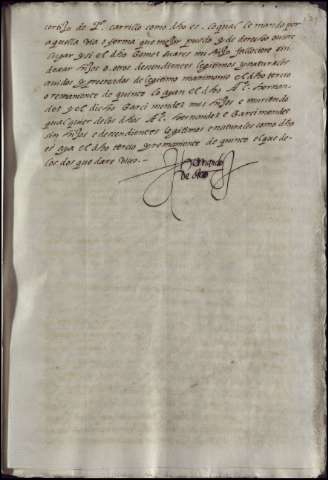 cortijo de P.º carrillo como dho es lo qual le mando por
aquella via e forma que mejor puedo y de derecho oviere
lugar y si el dho Gomez Suarez mi hijo falleciere sin
dexar hijos o otros descendientes legitimos y naturales
avidos y procreados de legitimo matrimonio el dho tercio
o remanente de quinto lo ayan el dho A.º hernan
dez y el dicho Garci mendez mis hijos e muriendo
qualquier de los dhos A.º hernandez e Garci mendez
sin hijos e descendientes legitimos e naturales como dho
es aya el dho tercio y remanente de quinto el que de
los dos quedare vivo